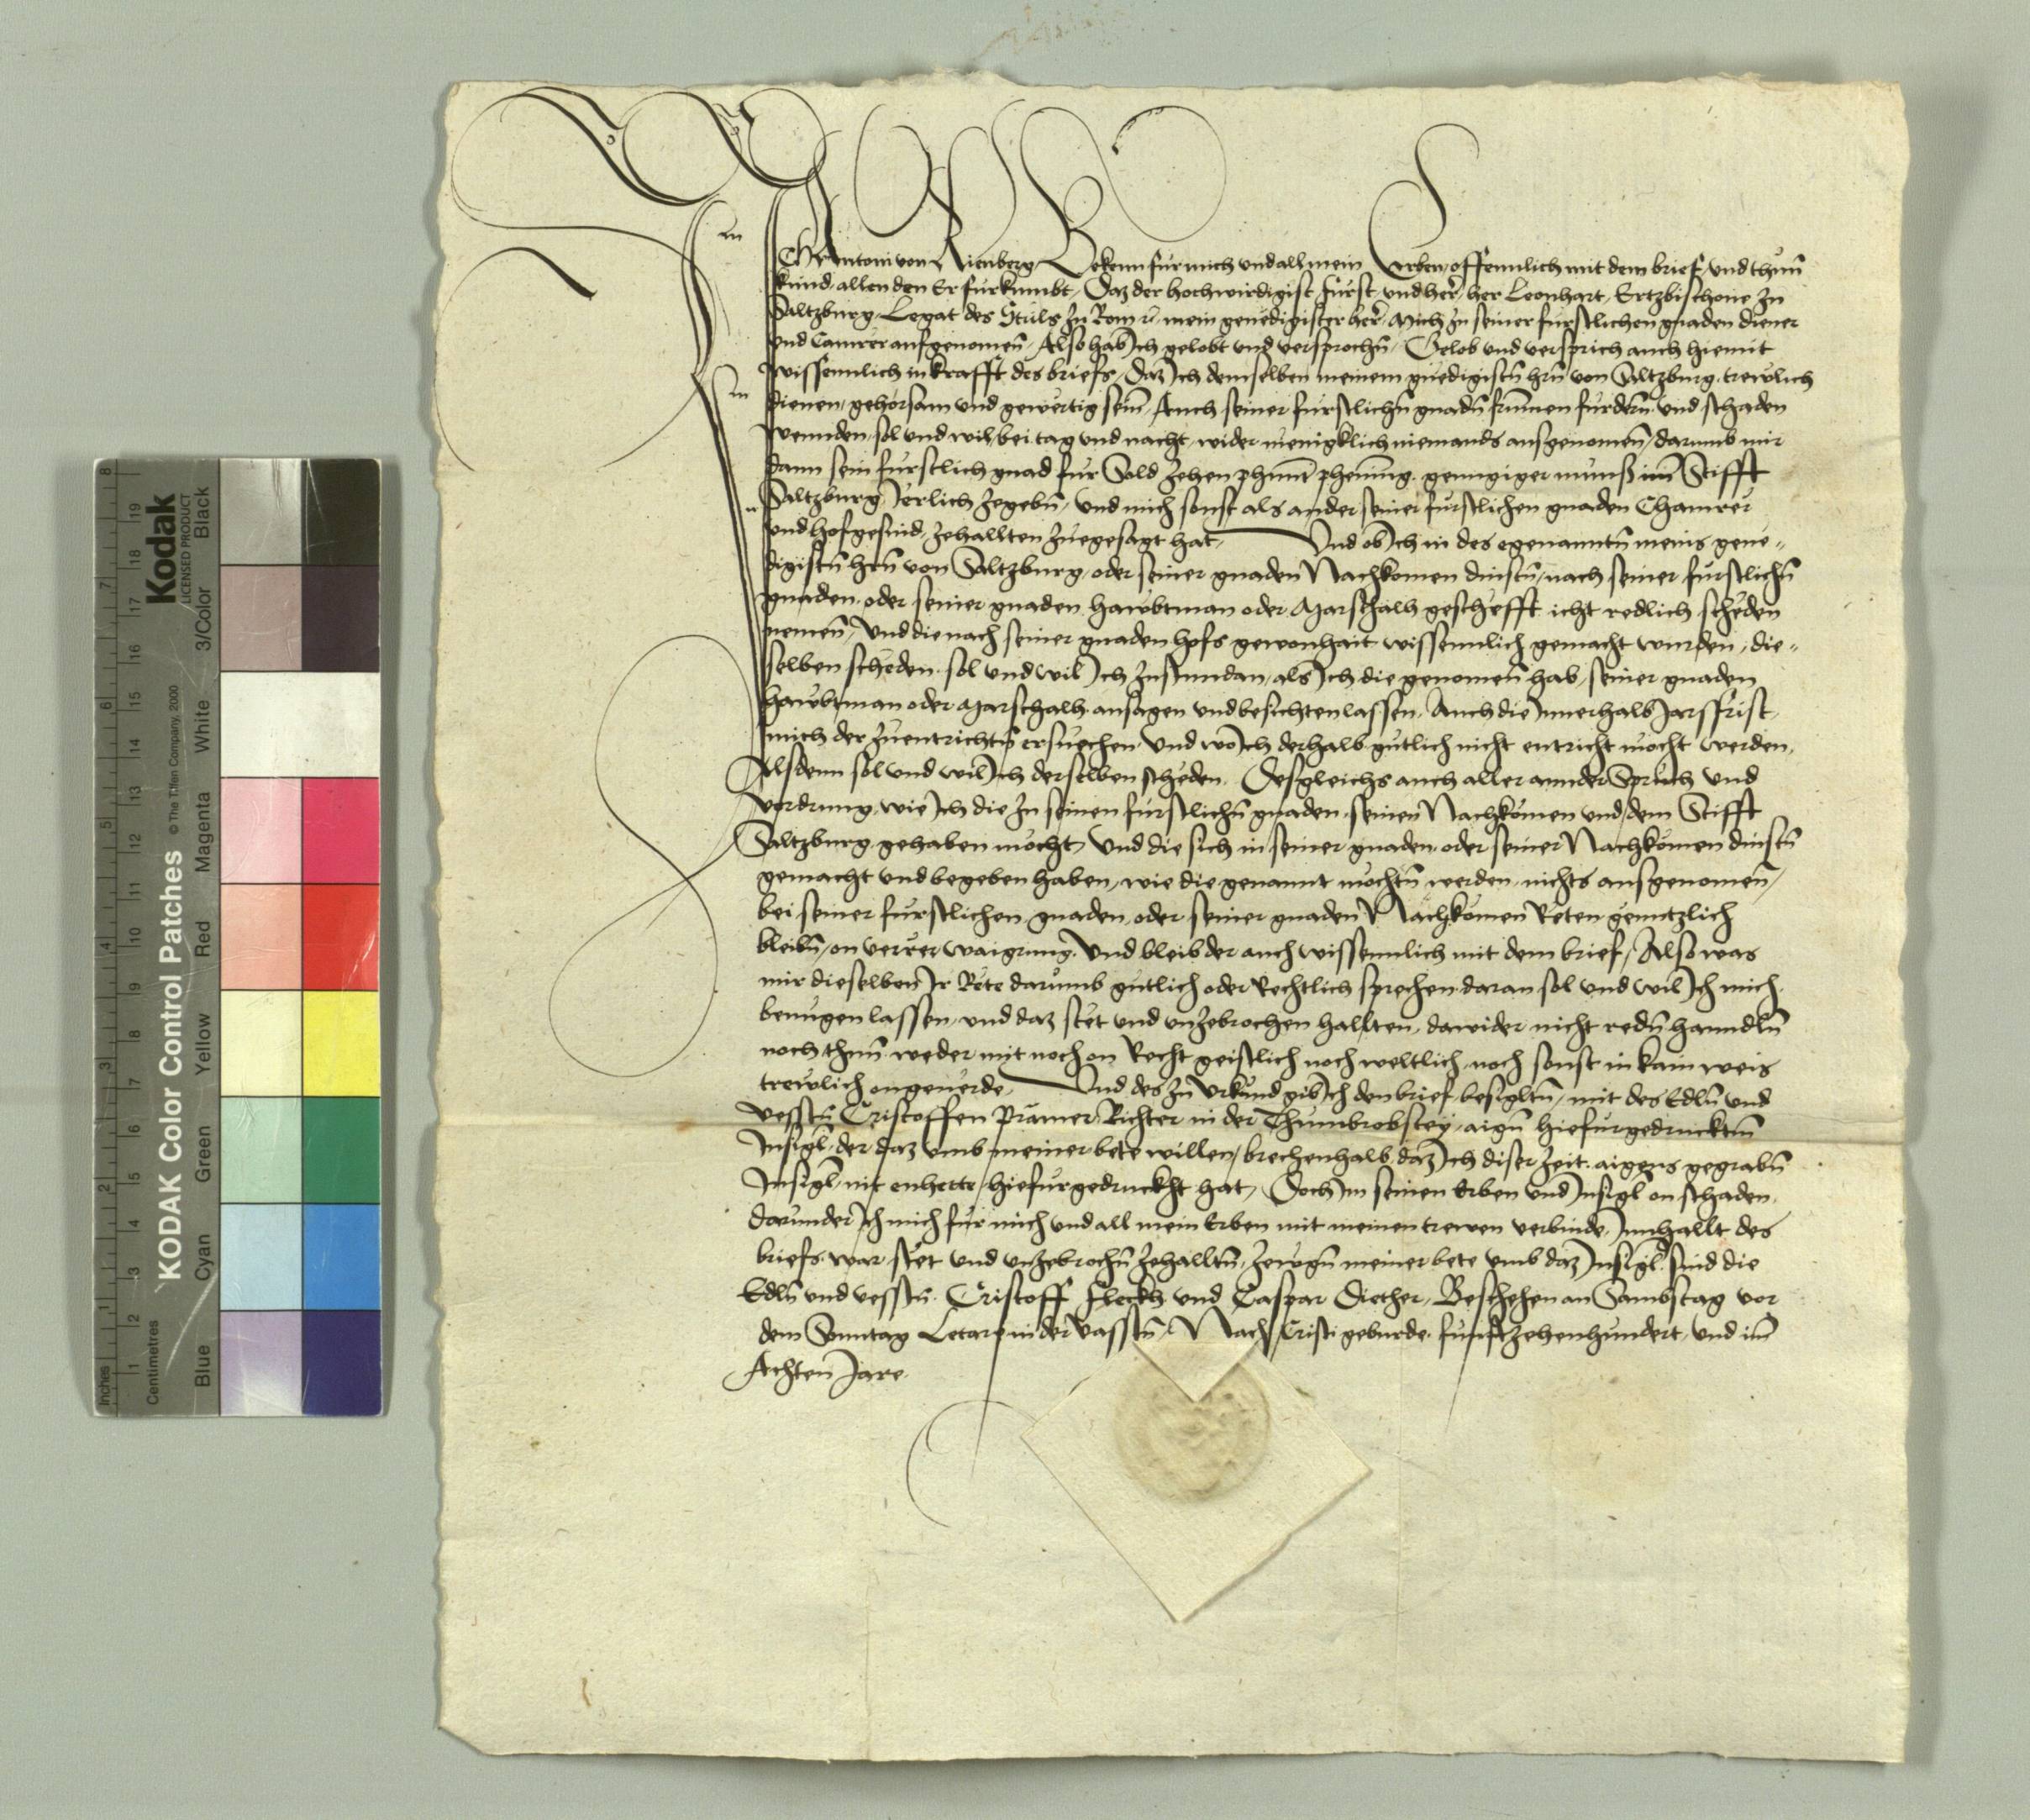 ICh Antoni von Nienberg Bekenn für mich und all mein Erben offennlich mit dem brief und thun
kund allen den Er fürkumbt, Daz der hochwirdigist fürst und her, her Leonhart, Ertzbischoue zu
Saltzburg Legat des Stuls zu Rom ꝛc. mein genedigister her, Mich zu seiner fürstlichen gnaden diener
und Camrer aufgenomen, Also hab Ich gelobt und versprochn, Gelob und versprich auch hiemit
wissennlich in krafft des briefs, Daz Ich demselben meinem gnedigistn hrn von Saltzburg, trewlich
dienen, gehorsam und gewertig sein, Auch seiner fürstlichn gnadn frumen fürdern und schaden
wennden, sol und wil, bei tag und nacht, wider menigklich niemands ausgenomen, darumb mir
dann sein fürstlich gnad für Sold zehen phunt phening, genngiger münß im Stifft
Saltzburg Jerlich zegebn, und mich sonst als ander seiner fürstlichen gnaden Chamrer
und hofgesind, zehallten zuegesagt hat, Und ob Ich in des egenanntn meins gene„
digistn hrn von Saltzburg, oder seiner gnaden Nachkomen dinstn, nach seiner fürstlichn
gnaden, oder seiner gnaden hawbtman oder Marschalh geschefft icht redlich scheden
nemen, Und die nach seiner gnaden hofs gewonhait wissennlich gemacht wurden, die„
selben scheden, sol und wil Ich zustundan, als Ich die genomen hab, seiner gnaden
hawbtman oder Marschalh ansagen und besichten lassen, Auch die Innerhalb Jarsfrist,
mich der zuentrichtn ersuechen, Und wo Ich derhalb gutlich nicht entricht mocht werden,
Alsdenn sol und wil Ich derselben scheden, Desgleichs auch aller annder Spruch und
vordrung, wie Ich die zu seinen fürstlichn gnaden, seinen Nachkomen und dem Stifft
Saltzburg gehaben mocht, Und die sich in seiner gnaden, oder seiner Nachkomen dinstn
gemacht und begeben haben, wie die genannt mochtn werden, nichts ausgenomen,
bei seiner fürstlichen gnaden, oder seiner gnaden Nachkomen Reten genntzlich
bleibn, on verrer waigrung, Und bleib der auch wissennlich mit dem brief, Also was
mir dieselben Ir Rete darumb gutlich oder Rechtlich sprechen, daran sol und wil Ich mich
benugen lassen, und daz stet und unzebrochen hallten, dawider nicht redn hanndln
noch thun weder mit noch on Recht geistlich noch weltlich, noch sonst in kain weis
trewlich ongeuerde, Und des zu Urkund gib Ich den brief besigltn, mit des Edln und
vesstn Cristoffen Pramer Richter in der Thumbrobstey, aign hiefürgedrucktm
Insigl, der daz umb meiner bete willen, brechenhalb daz Ich diser Zeit aigens gegrabn
Insigl nit enhette hiefürgedruckht hat, Doch Im seinen Erben und Insigl on schaden,
darunder Ich mich für mich und all mein Erben mit meinen trewen verbinde Innhallt des
briefs, war stet und unzebrochn zehalltn, Zewgn meiner bete umb daz Insigl, sind die
Edln und vesstn Cristoff Fleckh und Caspar Diether, Beschehen an Sambstag vor
dem Sonntag Letare in der vasstn, Nach Cristi geburde, funfftzehenhundert, und im
Achten Jare.
Inches
Centimetres
KODAK Color Control Patches © The Tiffen Company, 2000
Kodak
LICENSED PRODUCT
Blue Cyan Green Yellow Red Magenta White 3/Color Black
1 2 3 4 5 6 7 8
1 2 3 4 5 6 7 8 9 10 11 12 13 14 15 16 17 18 19